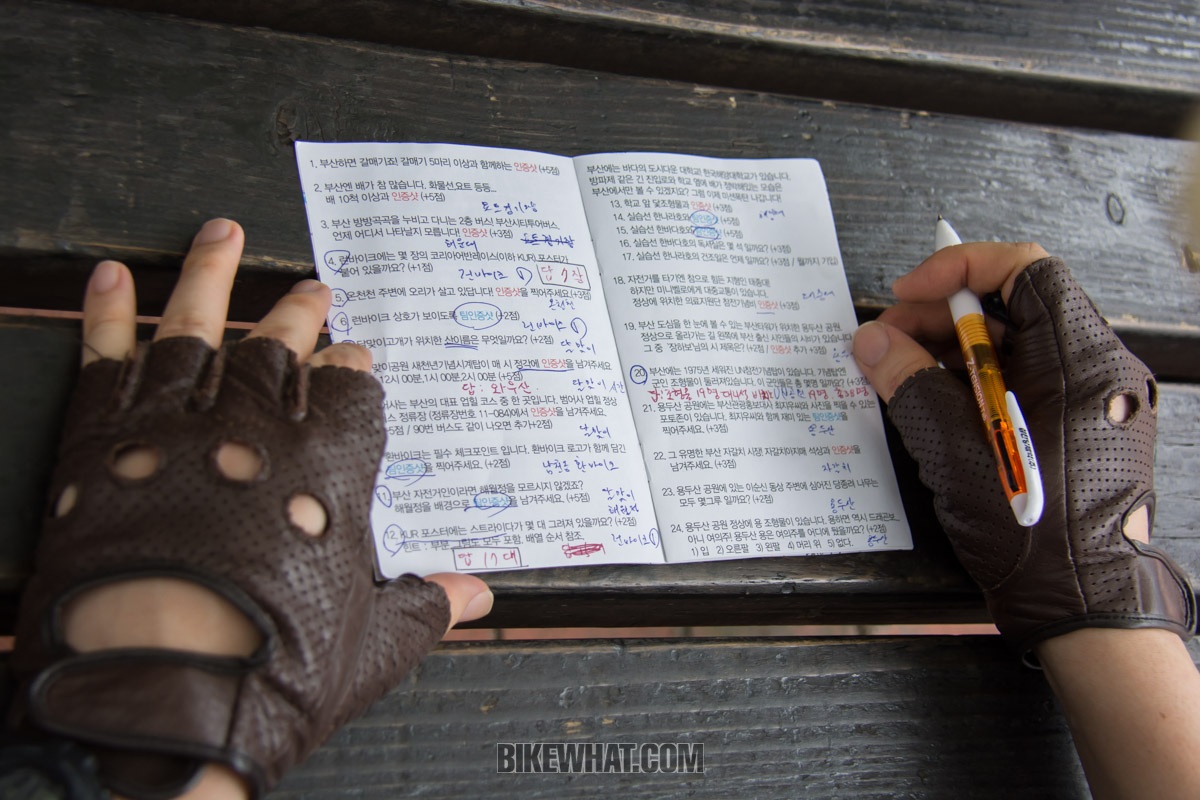 1. 부산하면 갈매기죠! 갈매기 5마리 이상과 함께하는 인증샷 (+5점)
2. 부산엔 배가 참 많습니다. 화물선,요트 등등...
배 10척 이상과 인증샷 (+5점)
3. 부산 방방곡곡을 누비고 다니는 2층 버스! 부산시티투어버스.
언제 어디서 나타날지 모릅니다! 인증샷 (+3점)
해운대
4. 런바이크에는 몇 장의 코리아어반레이스(이하 KUR) 포스터가
붙어 있을까요? (+1점)
런바이크 답 7장
5. 온천천 주변에 오리가 살고 있답니다! 인증샷을 찍어주세요 (+3점)
온천천
6. 런바이크 상호가 보이도록 팀인증샷 (+2점)
런바이크
달맞이고개가 위치한 산이름은 무엇일까요? (+2점)
달맞이
맞이공원 새천년기념시계탑이 매 시 정각에 인증샷을 남겨주세요
12시 00분,1시 00분,2시 00분 (+5점)
답: 와우산 달맞이
사는 부산의 대표 업힐 코스 중 한 곳입니다. 범어사 업힐 정상
스 정류장 (정류장번호 11-084)에서 인증샷을 남겨주세요.
5점 / 90번 버스도 같이 나오면 추가+2점)
달맞이
환바이크는 필수 체크포인트 입니다. 환바이크 로고가 함께 담긴
팀인증샷을 찍어주세요. (+2점)
환바이크
11. 부산 자전거인이라면 해월정을 모르시지 않겠죠?
해월정을 배경으로 팀인증샷을 남겨주세요. (+5점)
달맞이
해월정
12. KUR 포스터에는 스트라이다가 몇 대 그려져 있을까요? (+2점)
힌트 : 부분 그림도 모두 포함. 배열 순서 참조.
런바이크
답 17대
부산에는 바다의 도시다운 대학교! 한국해양대학교가 있습니다.
방파제 같은 긴 진입로와 학교 옆에 배가 정박해있는 모습은
부산에서만 볼 수 있겠지요? 그럼 이제 미션폭탄 나갑니다!
13. 학교 앞 닻조형물과 인증샷 (+3점)
14. 실습선 한나라호와 팀인증샷 (+5점)
15. 실습선 한바다호와 팀인증샷 (+5점)
16. 실습선 한나라호의 독서실은 몇 석 일까요? (+3점)
17. 실습선 한나라호의 건조일은 언제 일까요? (+3점 / 월까지 기입)
18. 자전거를 타기엔 참으로 힘든 지형인 태종대.
하지만 미니벨로에게 대중교통이 있습니다.
정상에 위치한 의료지원단 참전기념비 인증샷 (+3점)
태종대
19. 부산 도심을 한 눈에 볼 수 있는 부산타워가 위치한 용두산 공원.
정상으로 올라가는 길 왼쪽에 부산 출신 시인들의 시비가 있습니다
그 중 '장하보'님의 시 제목은? (+2점 / 인증샷 추가 +3점)
20. 부산에는 1975년 세워진 UN참전기념탑이 있습니다. 기념탑엔
군인 조형물이 둘러져있습니다. 이 군인들은 총 몇명 일까요? (+3점
21. 용두산 공원에는 부산관광홍보대사 최지우씨와 사진을 찍을 수 있는
포토존이 있습니다. 최지우씨와 함께 재미 있는 팀인증샷을
찍어주세요. (+3점)
용두산
22. 그 유명한 부산 자갈치 시장. 자갈치아지매 석상과 인증샷을
남겨주세요. (+3점)
자갈치
23. 용두산 공원에 있는 이순신 동상 주변에 심어진 당종려 나무는
모두 몇그루 일까요? (+2점)
용두산
24. 용두산 공원 정상에 용 조형물이 있습니다. 용하면 역시 드래곤보.
아니 여의주! 용두산 용은 여의주를 어디에 뒀을까요? (+2점)
1) 입 2) 오른팔 3) 왼팔 4) 머리 위 5) 없다.
용두산
BIKEWHAT.COM